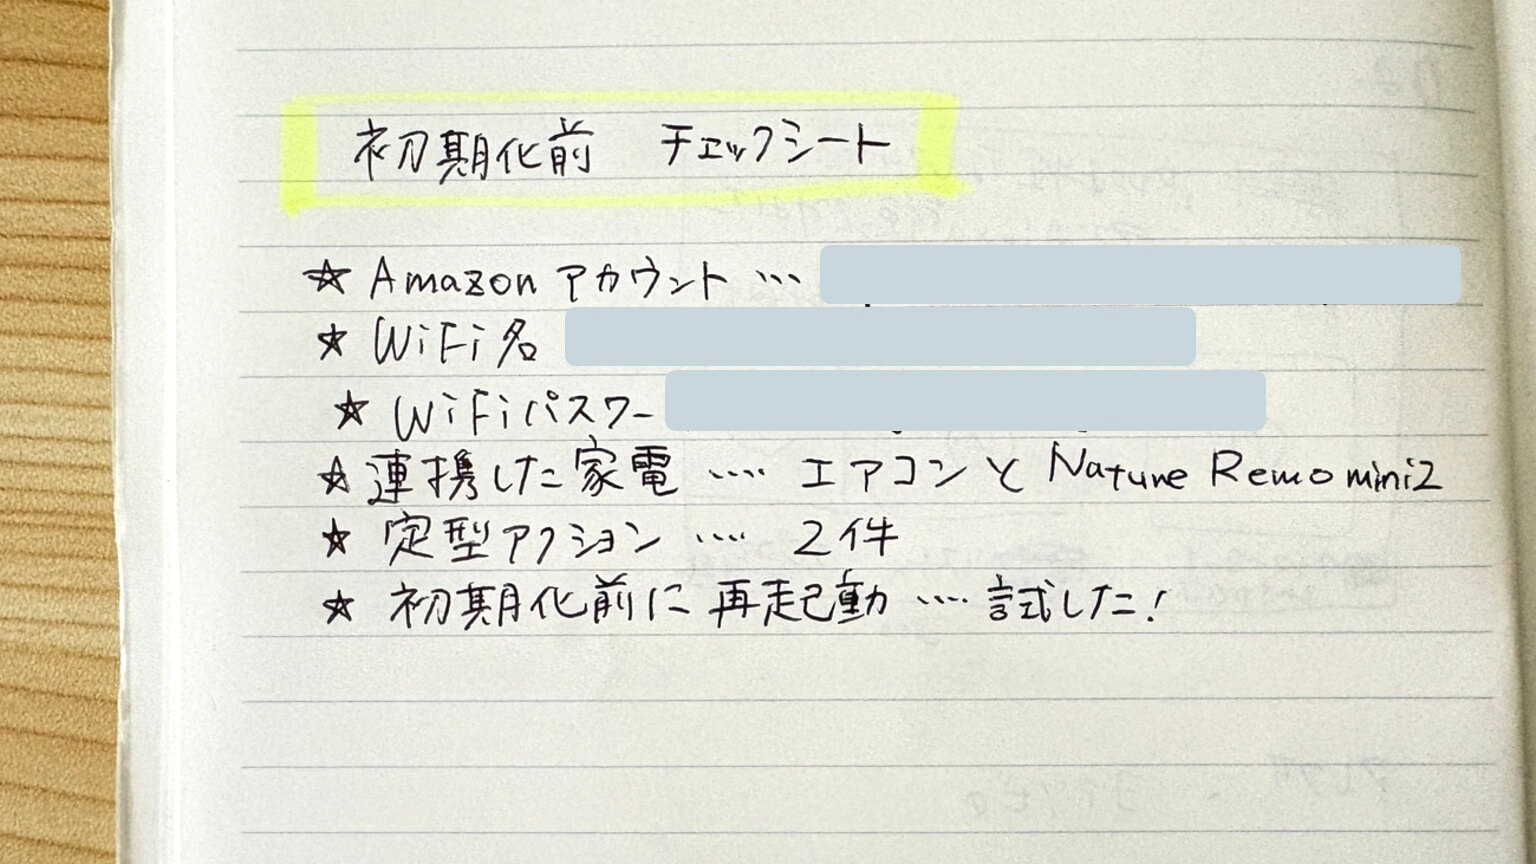 初期化前 チェックシート
☆ Amazon アカウント …
☆ WiFi名
☆ WiFiパスワー
☆ 連携した家電 …. エアコンと Nature Remo mini2
☆ 定型アクション …. 2件
☆ 初期化前に再起動 …. 試した!